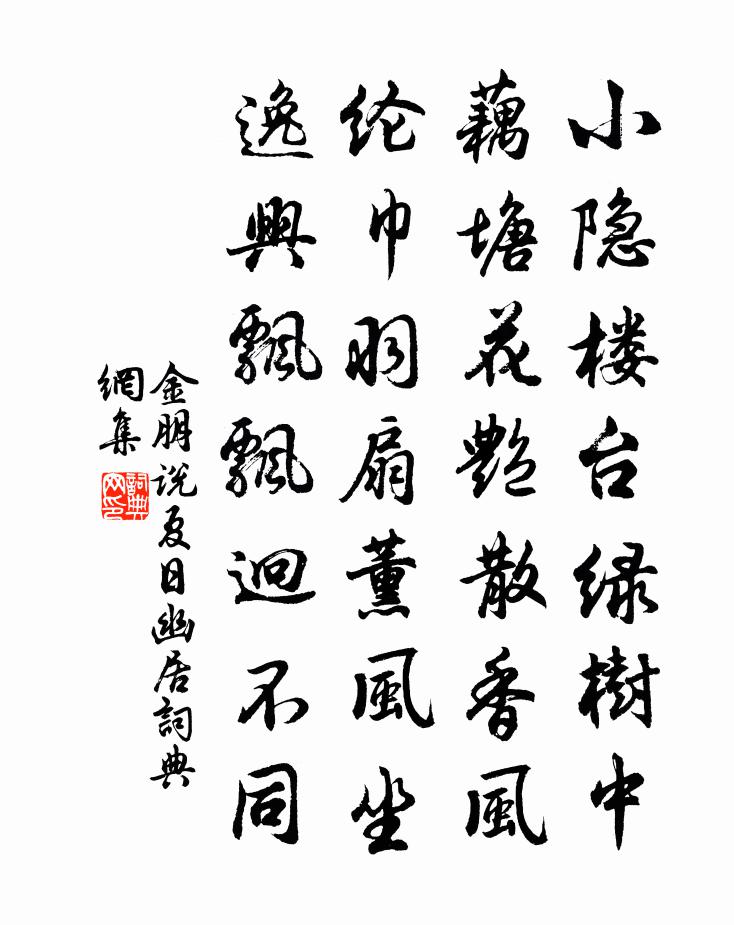 小隐楼台绿樹中
藕塘花艷散香風
纶巾羽扇薰風坐
逸興飄飄迥不同
金朋说夏日幽居詞典
網集
詞典
网印